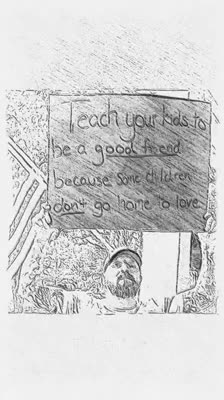 Teach your kids to
be a good friend
because some children
don't go home to love